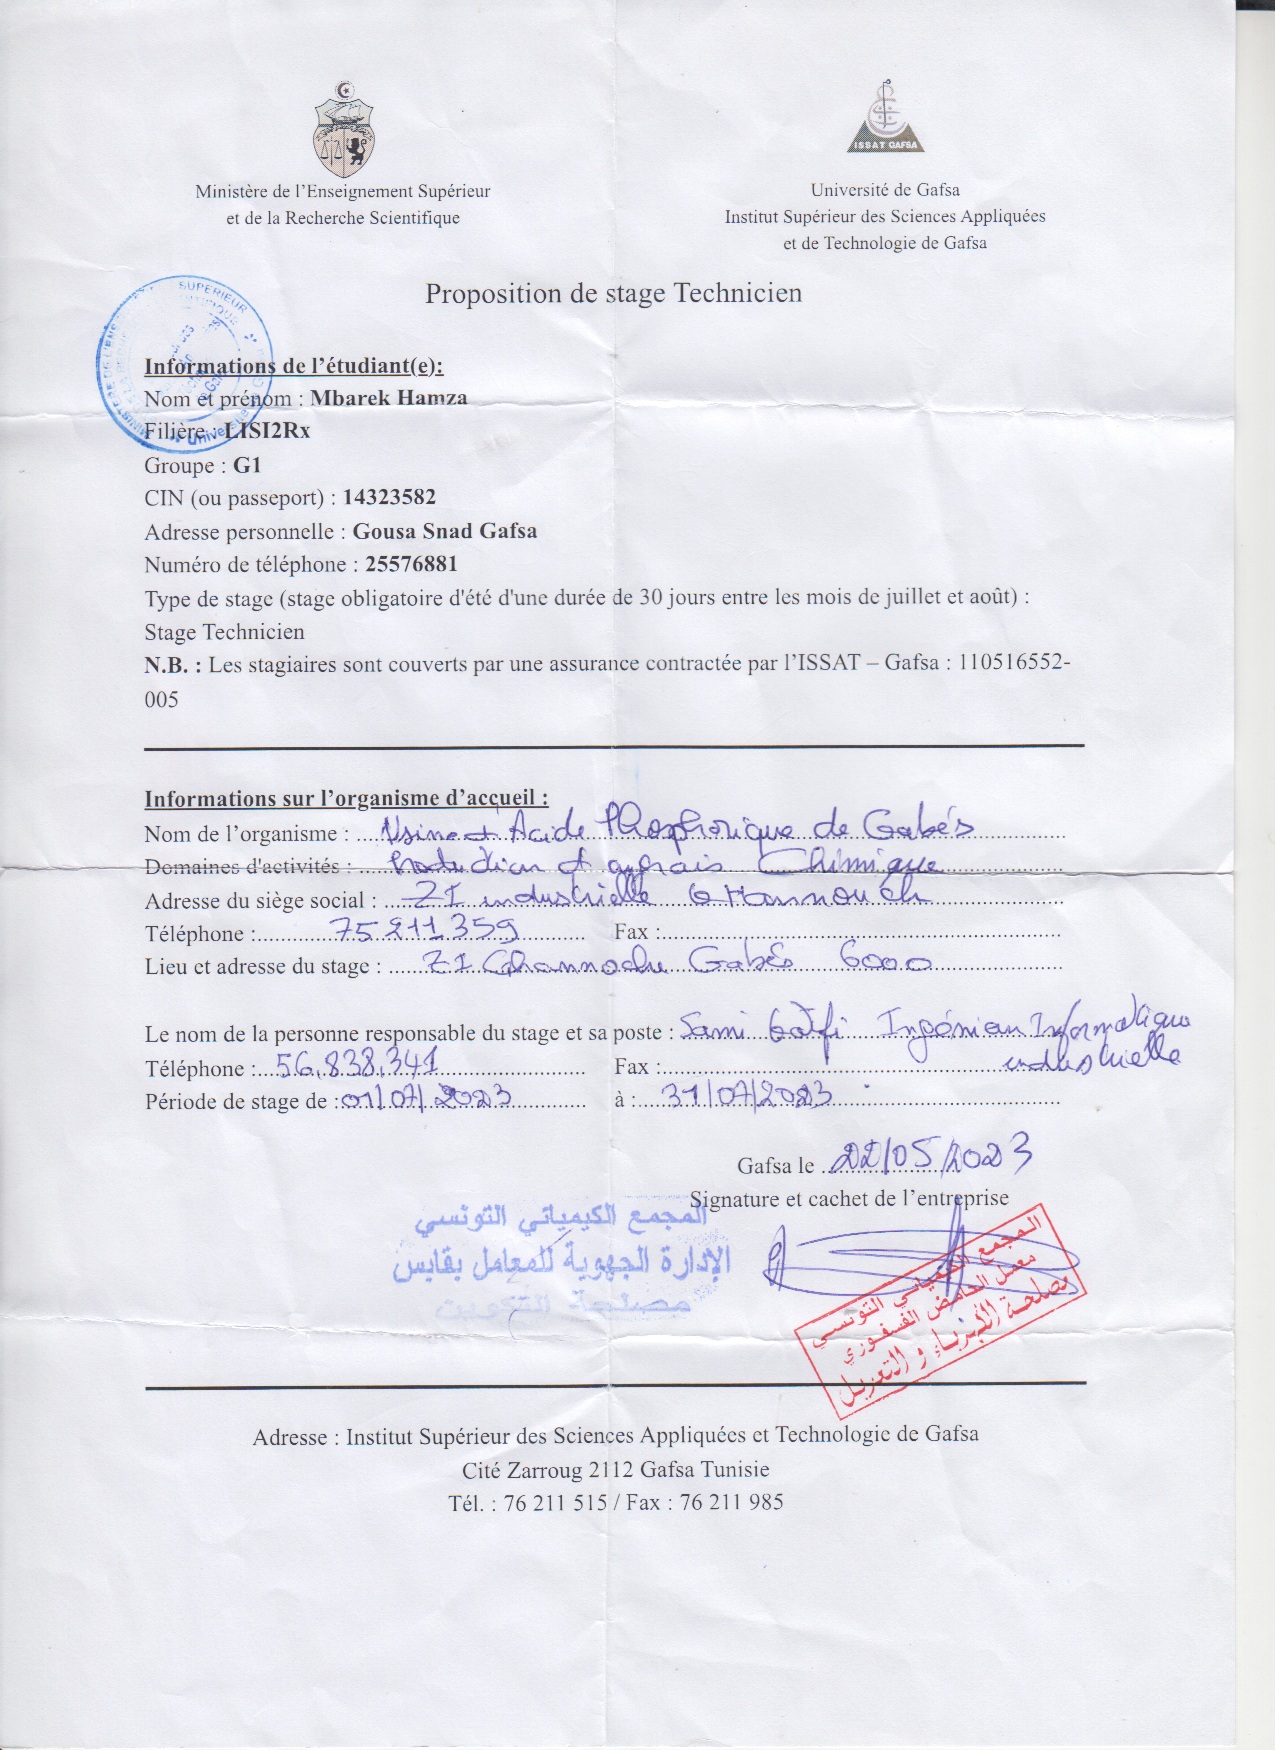 ISSAT GAFSA
Ministère de l'Enseignement Supérieur
et de la Recherche Scientifique
Université de Gafsa
Institut Supérieur des Sciences Appliquées
et de Technologie de Gafsa
Proposition de stage Technicien
SUPERIEUR
Informations de l'étudiant(e):
Nom et prénom : Mbarek Hamza
Filière : LISI2Rx
Groupe : G1
CIN (ou passeport) : 14323582
Adresse personnelle : Gousa Snad Gafsa
Numéro de téléphone : 25576881
Type de stage (stage obligatoire d'été d'une durée de 30 jours entre les mois de juillet et août) :
Stage Technicien
N.B. : Les stagiaires sont couverts par une assurance contractée par l'ISSAT – Gafsa : 110516552-
005
Informations sur l'organisme d'accueil :
Nom de l'organisme : Usine d'Acide Phosphorique de Gabés
Domaines d'activités : Production d'angrais Chimique
Adresse du siège social : ZI industrielle Ghannouch
Téléphone : 75 211 359 Fax :
Lieu et adresse du stage : ZI Ghannoche Gabés 6000
Le nom de la personne responsable du stage et sa poste : Sami Ingénieur Informatique
industrielle
Téléphone : 56.838.341 Fax :
Période de stage de : 01/07/2023 à : 31/07/2023
Gafsa le 22/05/2023
Signature et cachet de l'entreprise
المجمع الكيميائي التونسي
الإدارة الجهوية للمعامل بقابس
مصلحة التكوين
المجمع الكيميائي التونسي
معمل الحامض الفسفوري
مصلحة الكهرباء و التعديل
Adresse : Institut Supérieur des Sciences Appliquées et Technologie de Gafsa
Cité Zarroug 2112 Gafsa Tunisie
Tél. : 76 211 515 / Fax : 76 211 985